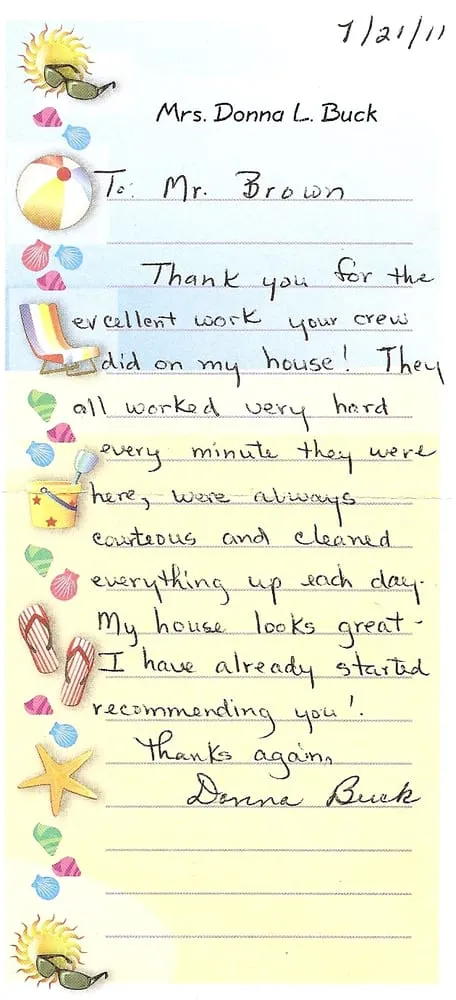 7/21/11
Mrs. Donna L. Buck
To: Mr. Brown
Thank you for the
excellent work your crew
did on my house! They
all worked very hard
every minute they were
here, were always
courteous and cleaned
everything up each day.
My house looks great -
I have already started
recommending you!.
Thanks again,
Donna Buck